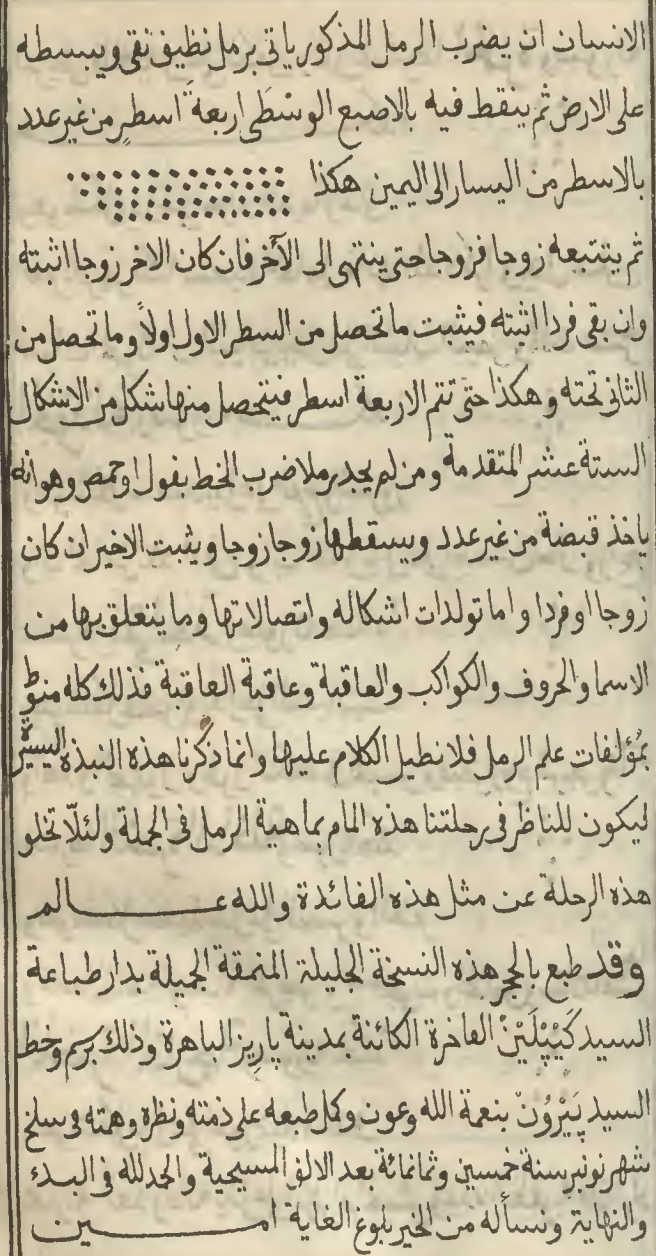 الانسان ان يضرب الرمل المذكور ياتى برمل نظيف نقى ويبسطه
على الارض ثم ينقط فيه بالاصبع الوسْطَى اربعة اسطرٍ من غير عدد
بالاسطر من اليسار الى اليمين هكذا
ثم يتتبعه زوجا فزوجا حتى ينتهى الى الآخر فان كان الاخر زوجا اثبته
وان بقى فردا اثبته فيثبت ما تحصل من السطر الاول اولًا وما تحصل من
الثانى تحته وهكذا حتى تتم الاربعة اسطر فيتحصل منها شكل من الاشكال
الستة عشر المتقدمة ومن لم يجد رملا ضرب الخط بفول او حمص وهو انه
ياخذ قبضة من غير عدد ويسقطها زوجا زوجا ويثبت الاخير ان كان
زوجا او فردا واما تولدات اشكاله واتصالاتها وما يتعلق بها من
الاسما والحروف والكواكب والعاقبة وعاقبة العاقبة فذلك كله منوّط
بمُؤلفات علم الرمل فلا نطيل الكلام عليها وانما ذكرنا هذه النبذة اليسيرة
ليكون للناظر فى رحلتنا هذه المام بماهية الرمل فى الجملة ولئلّا تخلو
هذه الرحلة عن مثل هذه الفائدة والله عـــالم
وقد طبع بالحجر هذه النسخة الجليلة المنمقة الجميلة بدار طباعة
السيد كَيْپْلَيْنْ الفاخرة الكائنة بمدينة پاريز الباهرة وذلك برسم وخط
السيد پَيْرُونْ بنعمة الله وعون وكل طبعه على ذمته ونظره وهمته فى سلخ
شهر نونبر سنة خمسين وثمانمائة بعد الالف المسيحية والحمد لله فى البدء
والنهاية ونسأله من الخير بلوغ الغاية امـــين